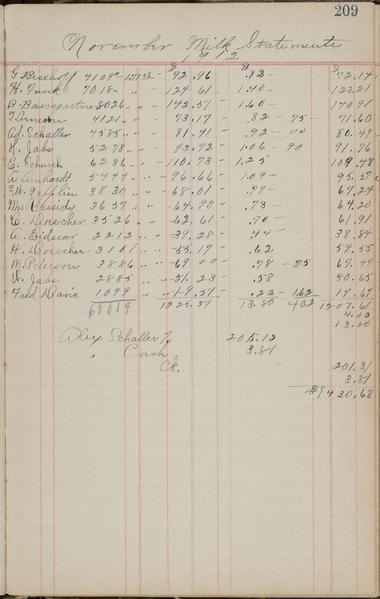 209
November Milk Statements
1912
G Bischoff 4109 - 177 1/2 - 72.96 - .82 - 72.14
H. Funk 7018 " " - 124 61 - 1.40 - 123.21
B Baumgartner 8026 " " - 142.51 - 1.60 - 140 91
4121 " - 73.17 - .82 - 75 - 71.60
Ad. Schaller 4585 " " - 81.41 - .92 - 00 80.49
H. Jabs 5278 " " - 93.72 - 1.06 - 90 91.76
E. Schurch 6236 " " - 110.73 - 1.25 109.48
A Arnhardt 5444 " " - 96.66 - 1.09 - 95.57
3830 " " - 68.01 - .77 - 67.24
Mrs Cassidy 3657 " " - 64.93 - .73 - 64.20
C. Dorscher 3526 " " - 62.61 - .70 - 61.91
A. Eidscor 2212 " " - 39.28 - .44 - 38.84
H. Dorscher 3107 " " - 55.17 - .62 54.55
M. Peterson 3886 " " - 69 00 - .78 - 75 67.47
W. Jabs 2885 " " - 51.23 - .58 50.65
Fred Davis 1099 " " 19.51 - .22 - 1.62 17.67
69019 1225.51 13.80 4.02 1207.61
4.02
13.80
Alex Schaller 205.12
" Cash 3.81
Ck. 201.31
3.81
$1430.68